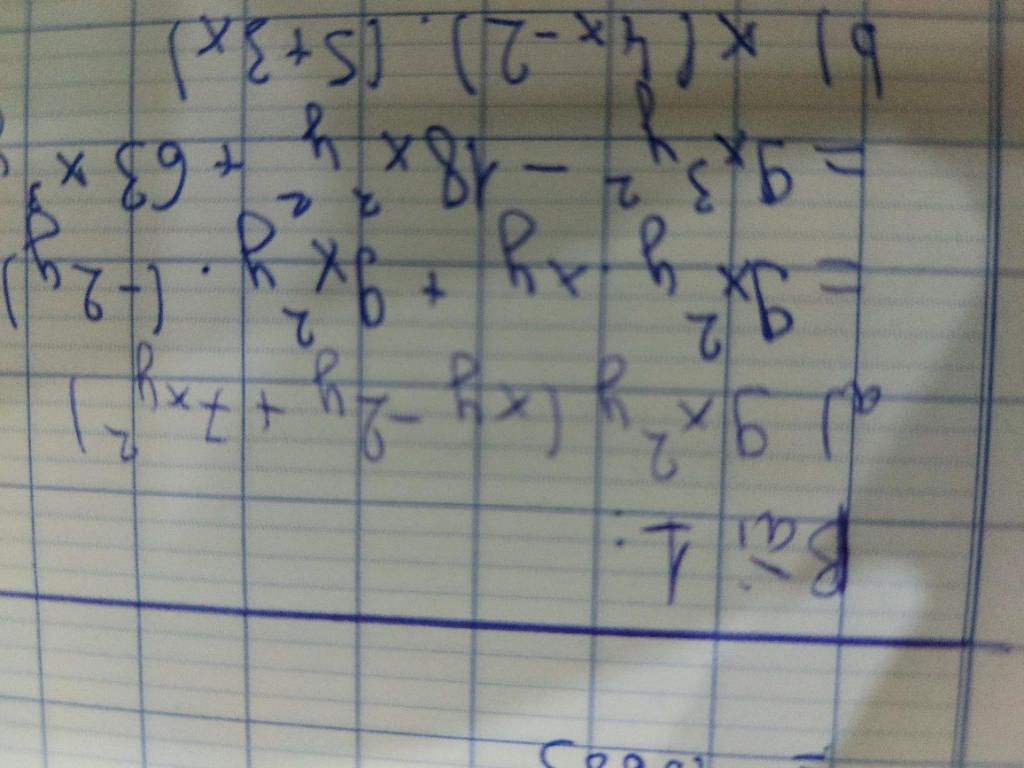 Bài 1:
a) 9x²y(xy - 2y + 7xy²)
= 9x²y xy + 9x²y . (-2y)
= 9x³y² - 18x²y² + 63x³
b) x(4x-2).(5+3x)